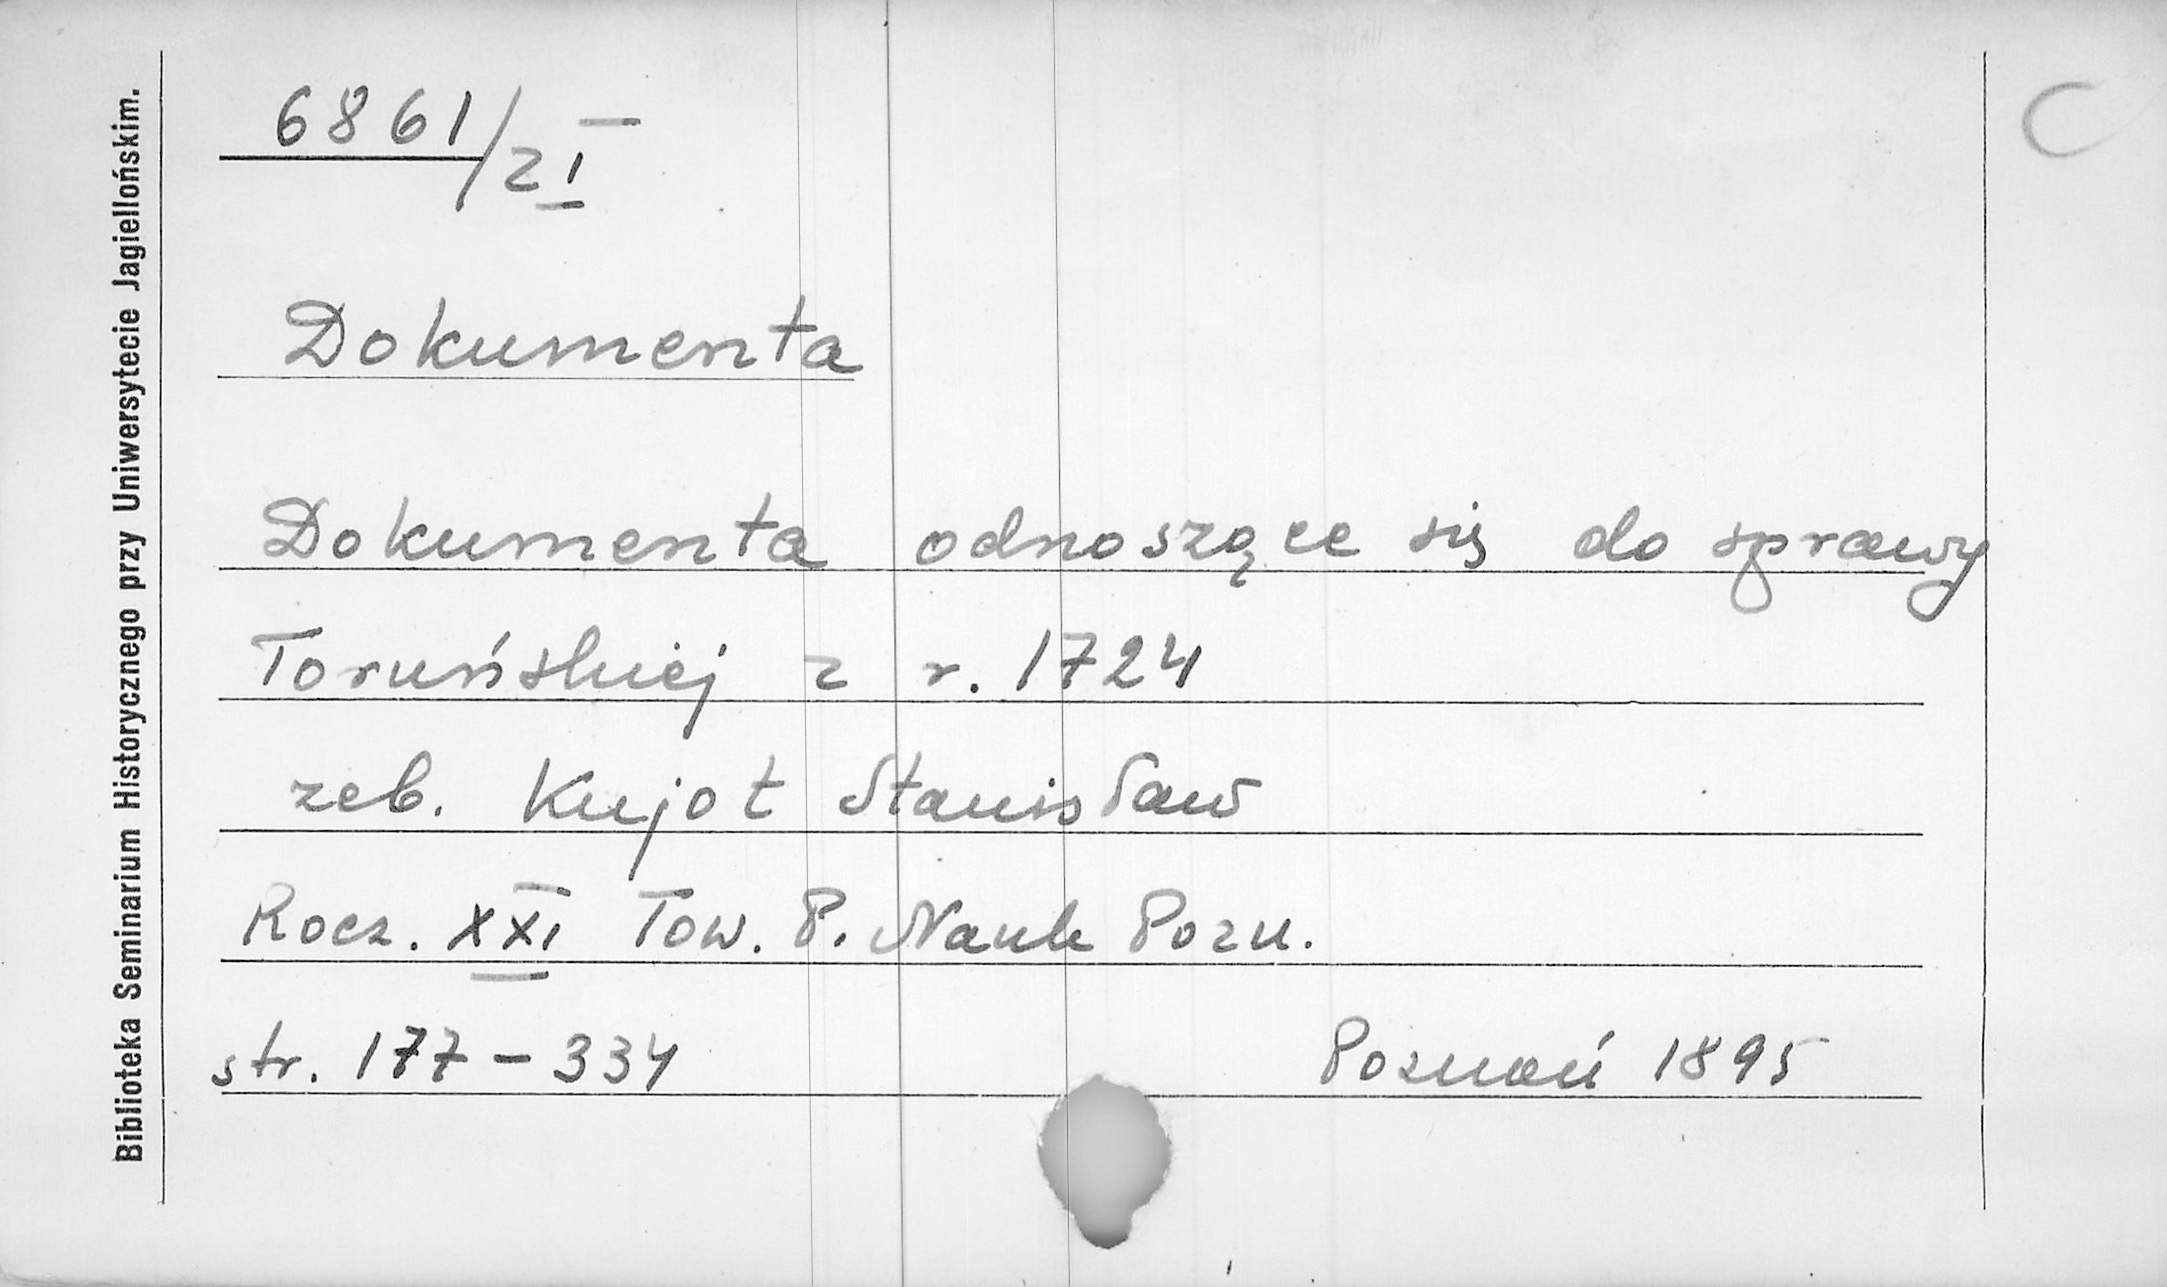 6861/ZI
C
Dokumenta
Dokumenta odnoszące się do sprawy
Toruńskiej z r. 1724
zeb. Kujot Stanisław
Rocz. XXI Tow. P. Nauk Pozn.
str. 177-334
Poznań 1895
Biblioteka Seminarium Historycznego przy Uniwersytecie Jagiellońskim.